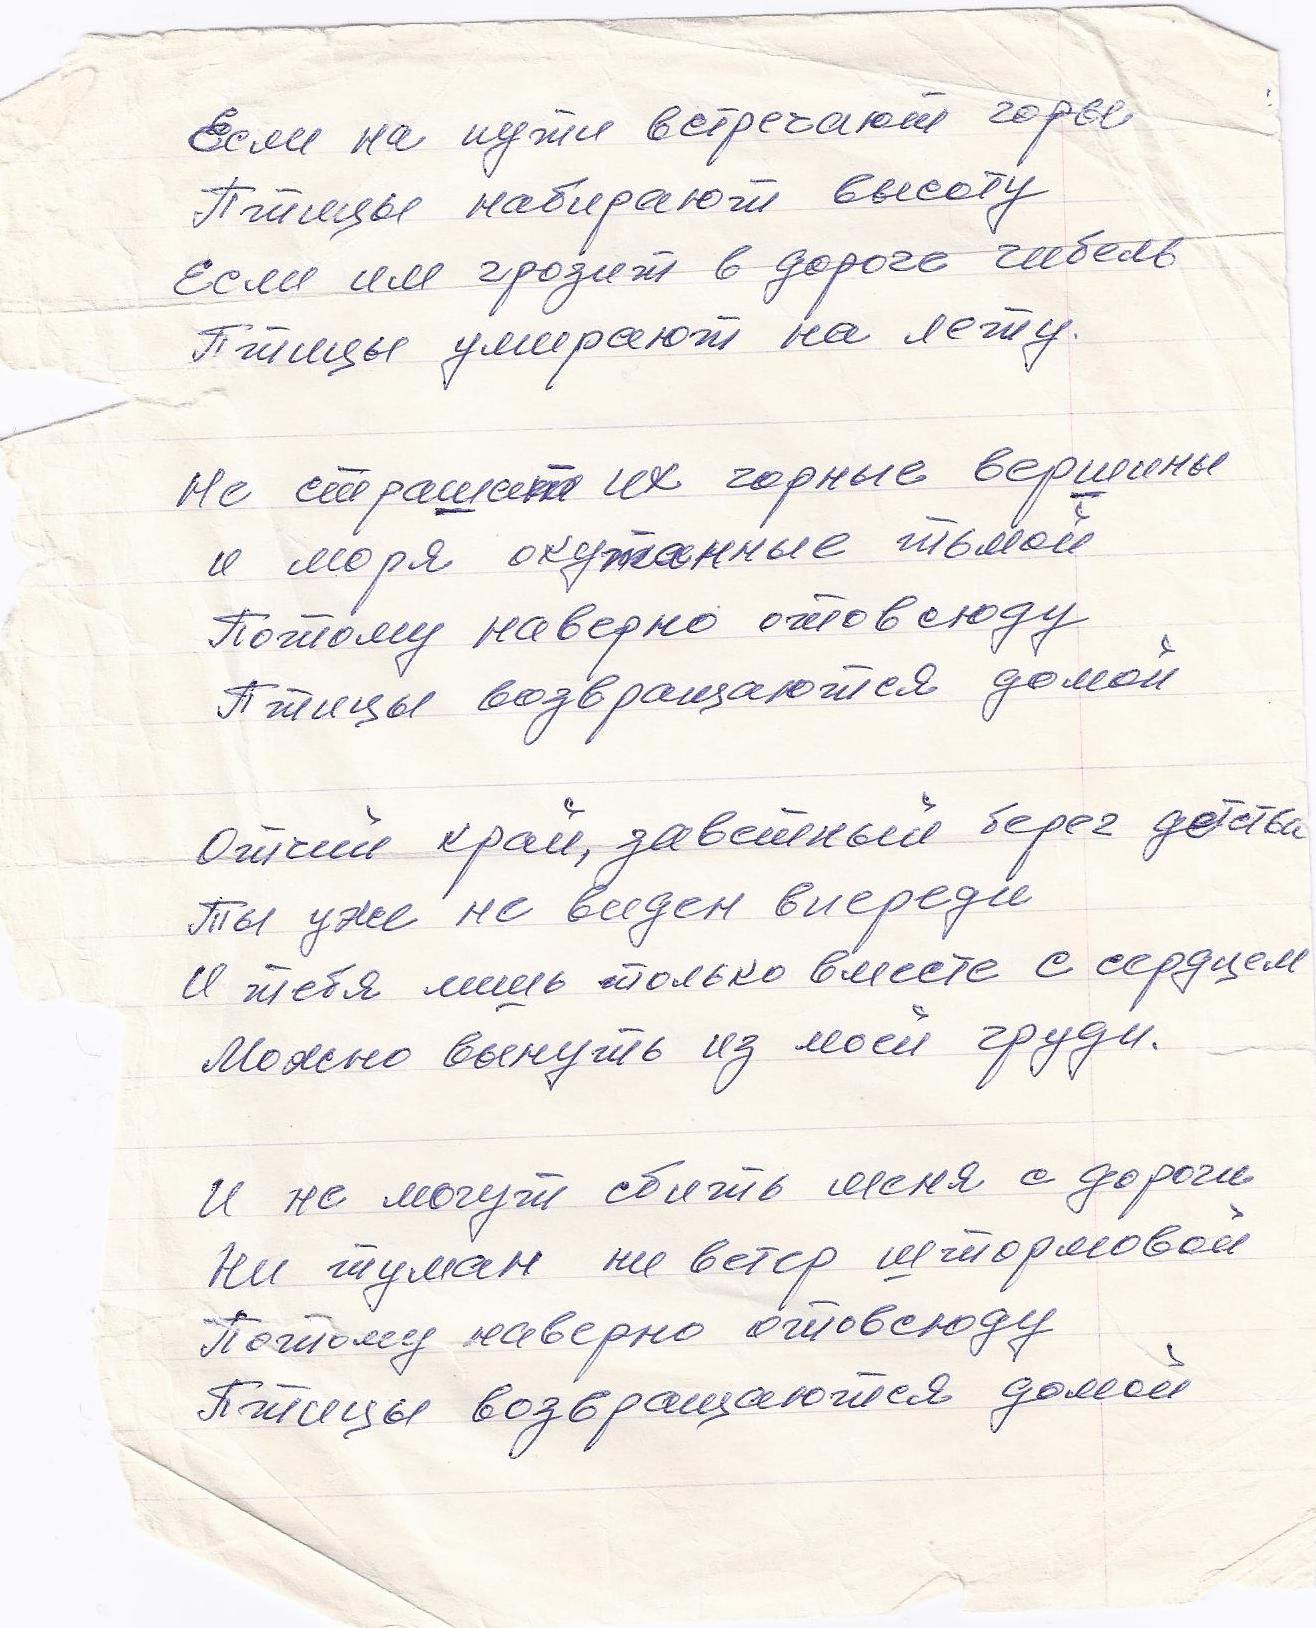 Если на пути встречают горы
Птицы набирают высоту
Если им грозит в дороге гибель
Птицы умирают на лету.
Не страшат их горные вершины
и моря окутанные тьмой
Потому наверно отовсюду
Птицы возвращаются домой
Отчий край, заветный берег детства
Ты уже не виден впереди
И тебя лишь только вместе с сердцем
Можно вынуть из моей груди.
И не могут сбить меня с дороги
Ни туман ни ветер штормовой
Потому наверно отовсюду
Птицы возвращаются домой